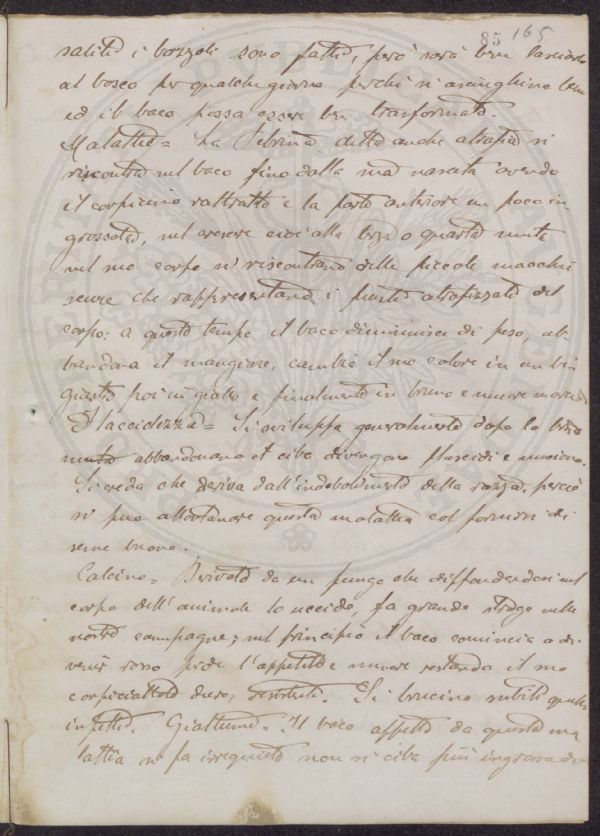 85 165
salite i bozzoli sono fatti, però sarà bene lasciarli
al bosco per qualche giorno perchè si asciughino bene
ed il baco possa essere ben trasformato.
Malattie = La Pebrina detta anche atrofia si
riscontra nel baco fino dalla sua nascita avendo
il corpicino rattratto e la parte anteriore un poco in-
grossata, nel crescere cioè alla terza o quarta muta
nel suo corpo si riscontrano delle piccole macchie
scure che rappresentano i punti atrofizzati del
corpo: a questo tempo il baco diminuisce di peso, ab-
bandona il mangiare, cambia il suo colore in un bi-
giastro poi in giallo e finalmente in bruno e muore
Flaccidezza = Si sviluppa generalmente dopo la terza
muta abbandonano il cibo divengono fluscidi e muoiono.
Si creda che deriva dall'indebolimento della razza, perciò
si può allontanare questa malattia col fornirsi di
seme buono.
Calcino = Derivato da un fungo che diffondendosi nel
corpo dell'animale lo uccide, fa grande strage nelle
nostre campagne; nel principio il baco comincia a di-
venir rosso perde l'appetito e muore restando il suo
corpiciattolo duro, Si brucino subito quelli
infetti. Giallume. Il baco affetto da questa ma
lattia si fa irrequieto non si ciba più ingrossa